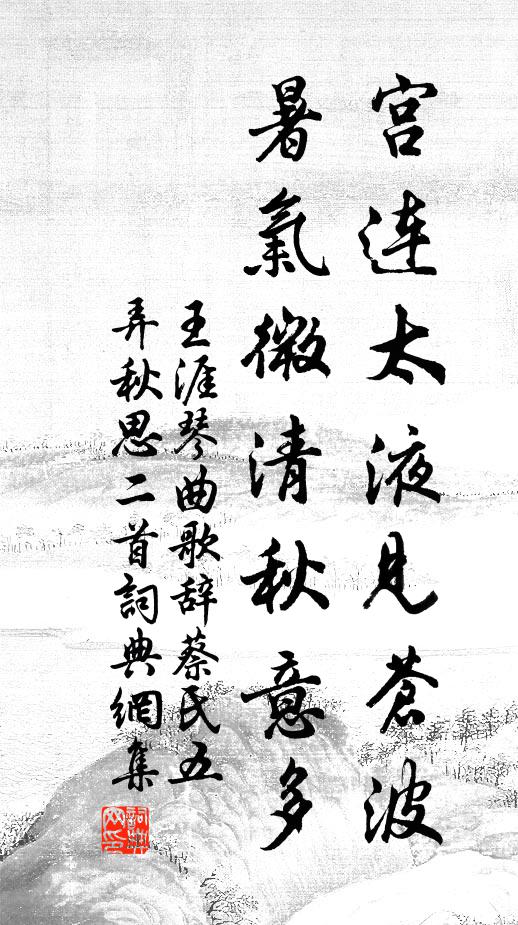 宫连太液見蒼波
暑氣微清秋意多
王涯琴曲歌辞蔡氏五
弄秋思二首詞典網集